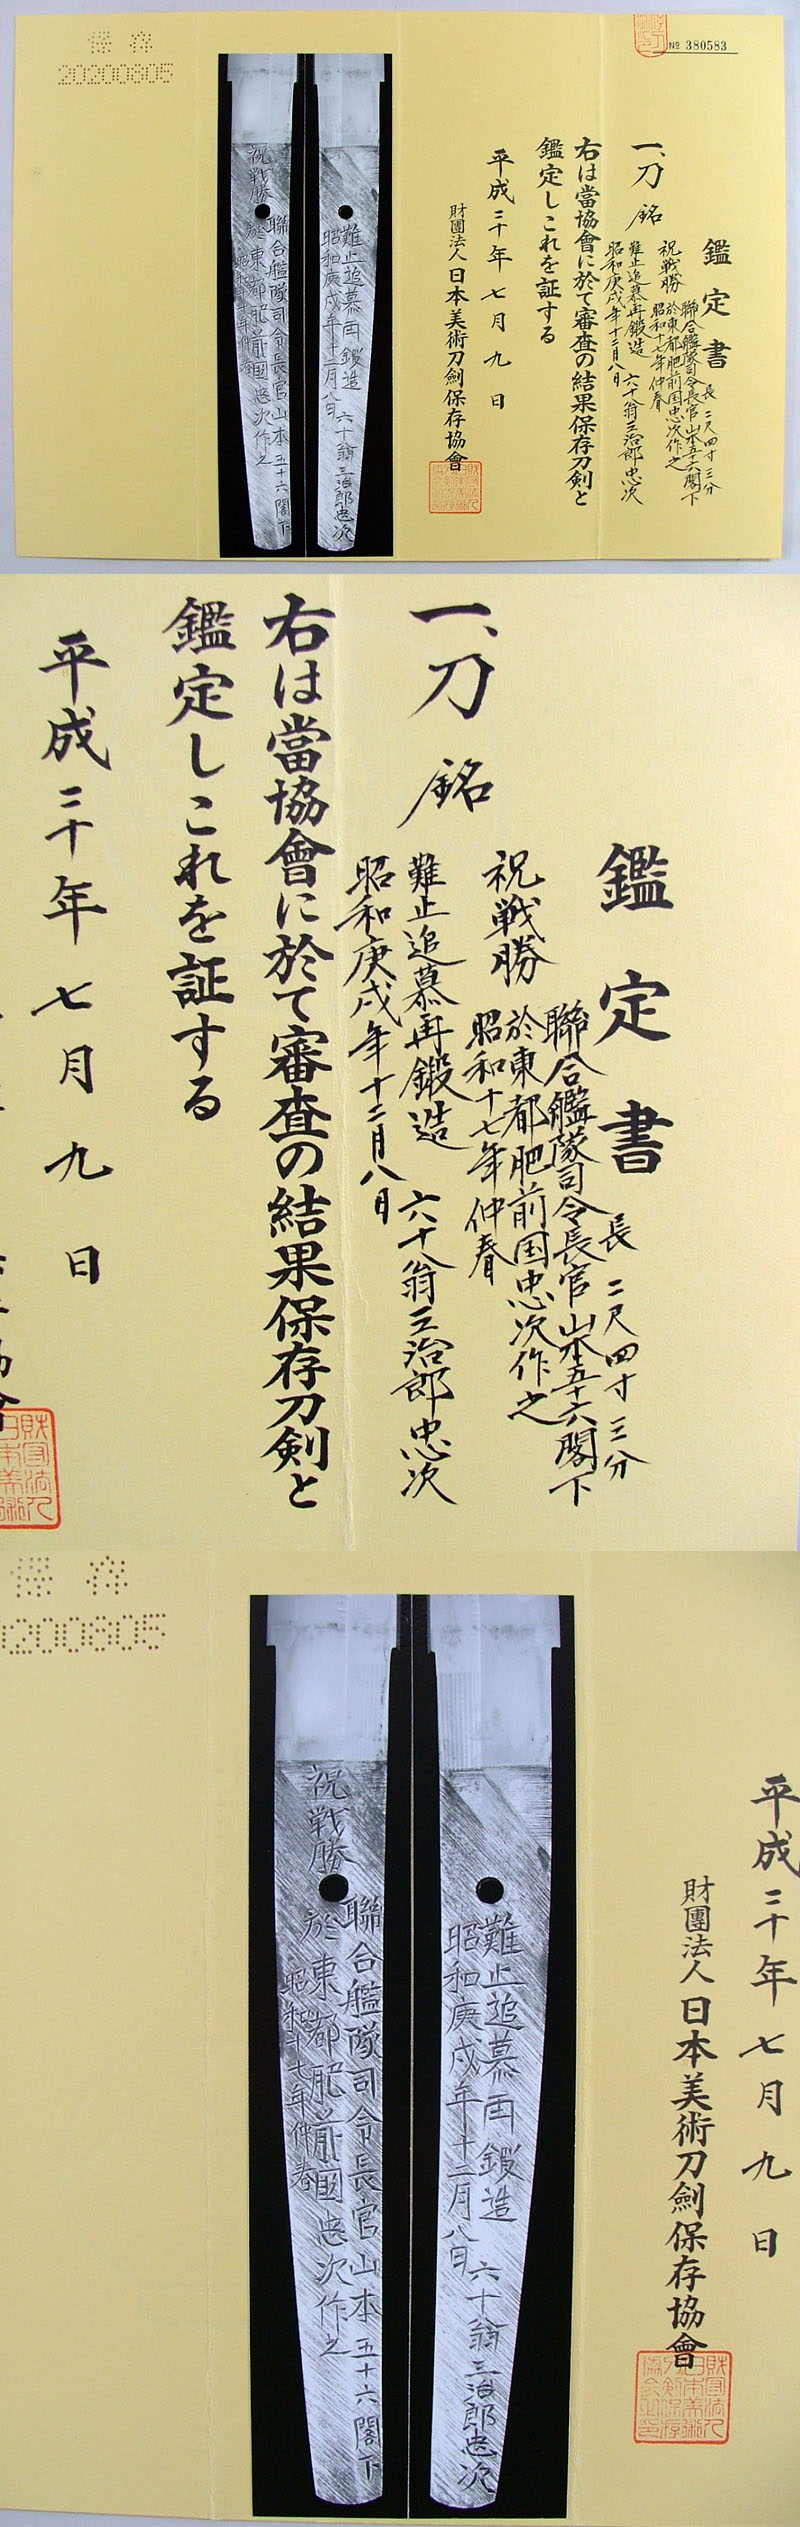 保存
20200805
祝戦勝
聯合艦隊司令長官山本五十六閣下
於東都肥前國忠次作之
昭和十七年仲春
難止追慕再鍛造
昭和庚戌年十二月八日
六十翁三治郎忠次
No 380583
鑑定書
一、刀 銘
長二尺四寸三分
祝戦勝
聯合艦隊司令長官山本五十六閣下
於東都肥前国忠次作之
昭和十七年仲春
難止追慕再鍛造 六十翁三治郎忠次
昭和庚戌年十二月八日
右は當協會に於て審査の結果保存刀剣と
鑑定しこれを証する
平成二十年七月九日
財團法人日本美術刀劍保存協會
鑑定書
長二尺四寸三分
一、刀 銘
祝戦勝
聯合艦隊司令長官山本五十六閣下
於東都肥前国忠次作之
昭和十七年仲春
難止追慕再鍛造 六十翁三治郎忠次
昭和庚戌年十二月八日
右は當協會に於て審査の結果保存刀剣と
鑑定しこれを証する
平成二十年七月九日
保存
0200805
祝戦勝
聯合艦隊司令長官山本五十六閣下
於東都肥前國忠次作之
昭和十七年仲春
難止追慕再鍛造
昭和庚戌年十二月八日
六十翁三治郎忠次
平成二十年七月九日
財團法人日本美術刀劍保存協會